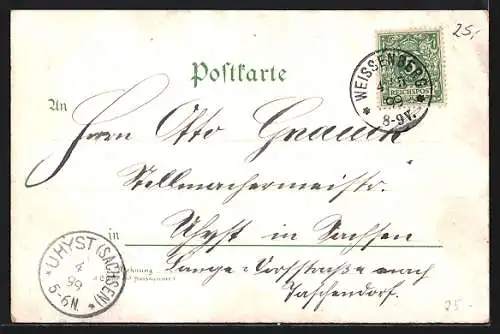 25,-
Postkarte
WEISSENBERG
4
99
8-9V.
REICHSPOST
An
Herrn Otto
Stellmachermeistr.
in Uhyst in Sachsen
Lange-Vorfstraße nach
Taschendorf.
UHYST (SACHSEN)
4
99
5-6N.
25.-